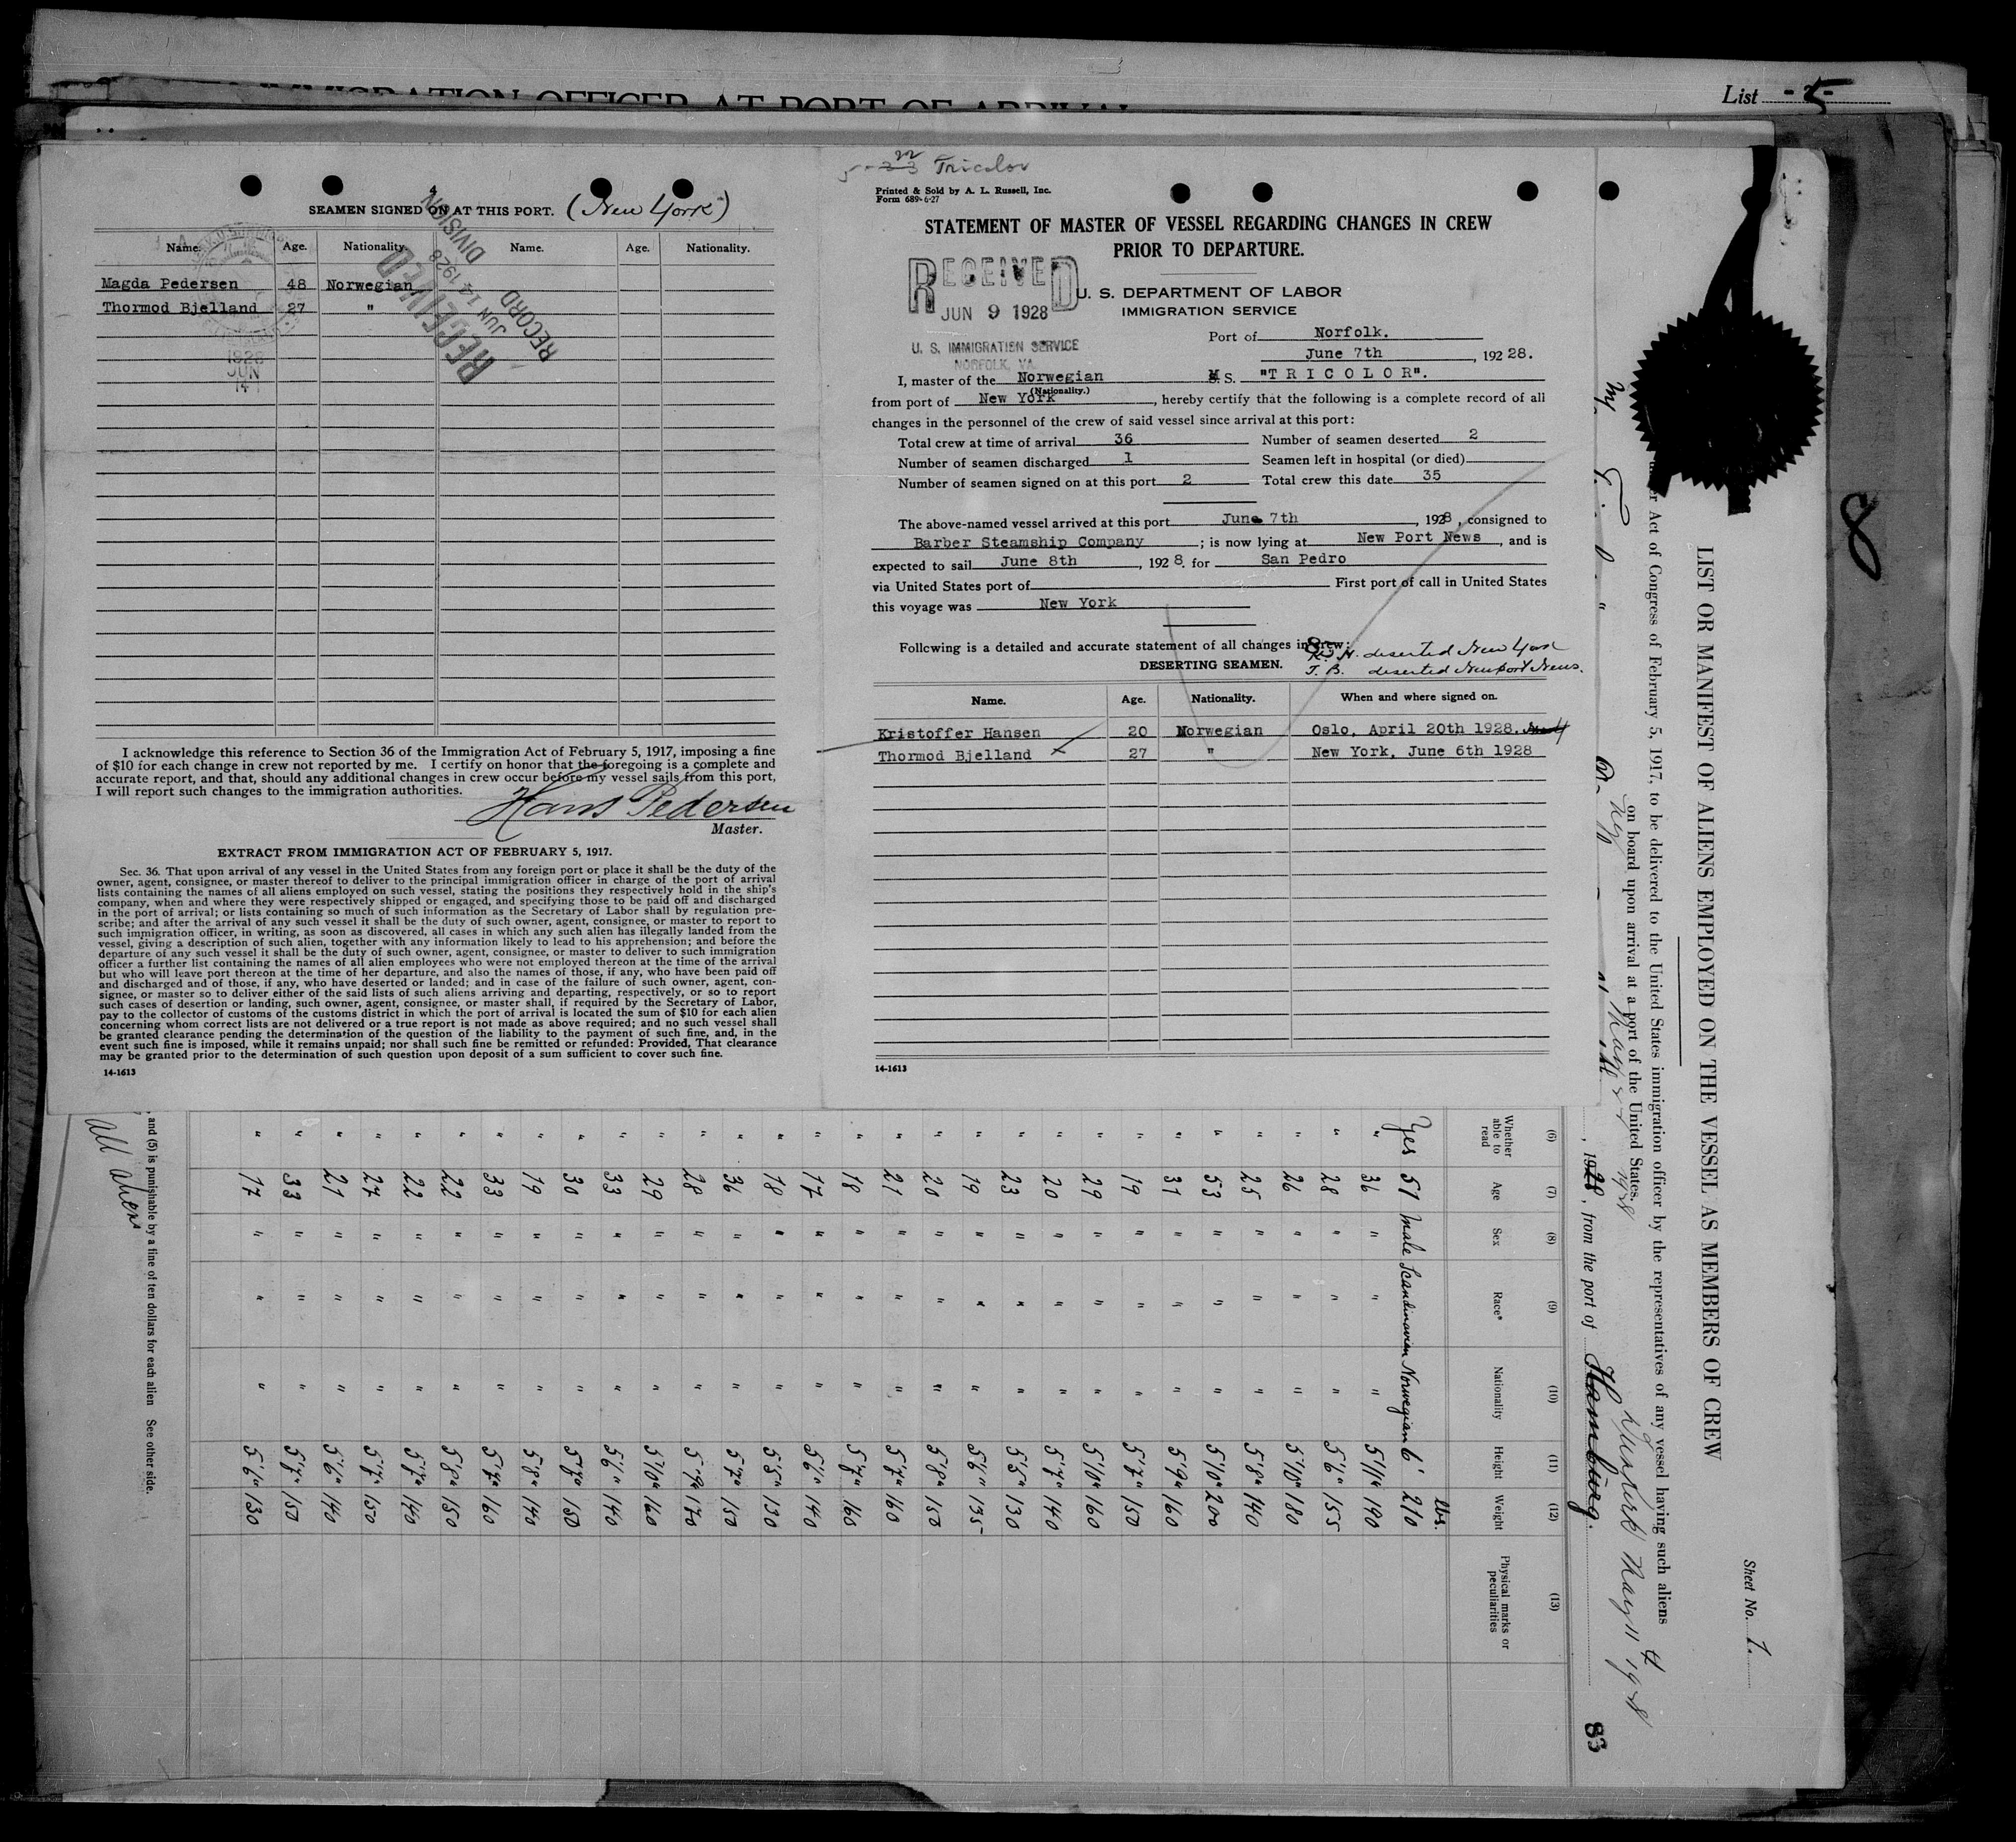 IMMIGRATION OFFICER AT PORT OF ARRIVAL
List - 5 -
SEAMEN SIGNED ON AT THIS PORT. (New York)
Name. Age. Nationality. Name. Age. Nationality.
Magda Pedersen 48 Norwegian
Thormod Bjelland 27 "
RECEIVED
JUN 14 1928
RECORD DIVISION
1928
JUN
14
I acknowledge this reference to Section 36 of the Immigration Act of February 5, 1917, imposing a fine
of $10 for each change in crew not reported by me. I certify on honor that the foregoing is a complete and
accurate report, and that, should any additional changes in crew occur before my vessel sails from this port,
I will report such changes to the immigration authorities.
Hans Pedersen
Master.
EXTRACT FROM IMMIGRATION ACT OF FEBRUARY 5, 1917.
Sec. 36. That upon arrival of any vessel in the United States from any foreign port or place it shall be the duty of the
owner, agent, consignee, or master thereof to deliver to the principal immigration officer in charge of the port of arrival
lists containing the names of all aliens employed on such vessel, stating the positions they respectively hold in the ship's
company, when and where they were respectively shipped or engaged, and specifying those to be paid off and discharged
in the port of arrival; or lists containing so much of such information as the Secretary of Labor shall by regulation pre-
scribe; and after the arrival of any such vessel it shall be the duty of such owner, agent, consignee, or master to report to
such immigration officer, in writing, as soon as discovered, all cases in which any such alien has illegally landed from the
vessel, giving a description of such alien, together with any information likely to lead to his apprehension; and before the
departure of any such vessel it shall be the duty of such owner, agent, consignee, or master to deliver to such immigration
officer a further list containing the names of all alien employees who were not employed thereon at the time of the arrival
but who will leave port thereon at the time of her departure, and also the names of those, if any, who have been paid off
and discharged and of those, if any, who have deserted or landed; and in case of the failure of such owner, agent, con-
signee, or master so to deliver either of the said lists of such aliens arriving and departing, respectively, or so to report
such cases of desertion or landing, such owner, agent, consignee, or master shall, if required by the Secretary of Labor,
pay to the collector of customs of the customs district in which the port of arrival is located the sum of $10 for each alien
concerning whom correct lists are not delivered or a true report is not made as above required; and no such vessel shall
be granted clearance pending the determination of the question of the liability to the payment of such fine, and, in the
event such fine is imposed, while it remains unpaid; nor shall such fine be remitted or refunded: Provided, That clearance
may be granted prior to the determination of such question upon deposit of a sum sufficient to cover such fine.
14-1613
Tricolor
Printed & Sold by A. L. Russell, Inc.
Form 689-6-27
STATEMENT OF MASTER OF VESSEL REGARDING CHANGES IN CREW
PRIOR TO DEPARTURE.
RECEIVED
JUN 9 1928
U. S. IMMIGRATION SERVICE
NORFOLK, VA.
U. S. DEPARTMENT OF LABOR
IMMIGRATION SERVICE
Port of Norfolk.
June 7th, 1928.
I, master of the Norwegian M S. "T R I C O L O R".
(Nationality.)
from port of New York, hereby certify that the following is a complete record of all
changes in the personnel of the crew of said vessel since arrival at this port:
Total crew at time of arrival 36 Number of seamen deserted 2
Number of seamen discharged 1 Seamen left in hospital (or died)
Number of seamen signed on at this port 2 Total crew this date 35
The above-named vessel arrived at this port June 7th, 1928, consigned to
Barber Steamship Company; is now lying at New Port News, and is
expected to sail June 8th, 1928. for San Pedro
via United States port of First port of call in United States
this voyage was New York
Following is a detailed and accurate statement of all changes in crew:
DESERTING SEAMEN.
K. H. deserted New York
T. B. deserted Newport News.
Name. Age. Nationality. When and where signed on.
Kristoffer Hansen 20 Norwegian Oslo, April 20th 1928.
Thormod Bjelland 27 " New York, June 6th 1928
14-1613
8
Sheet No. 1.
LIST OR MANIFEST OF ALIENS EMPLOYED ON THE VESSEL AS MEMBERS OF CREW
Act of Congress of February 5, 1917, to be delivered to the United States immigration officer by the representatives of any vessel having such aliens
on board upon arrival at a port of the United States.
, 1928, from the port of Hamburg.
Dunkirk May 11 1928
83
(6) (7) (8) (9) (10) (11) (12) (13)
Whether able to read Age Sex Race* Nationality Height Weight Physical marks or peculiarities
lbs.
Yes 51 Male Scandinavian Norwegian 6' 210
" 36 " " " 5'11" 190
" 28 " " " 5'6" 155
" 26 " " " 5'10" 180
" 25 " " " 5'8" 140
" 53 " " " 5'10" 200
" 31 " " " 5'9" 160
" 19 " " " 5'7" 150
" 29 " " " 5'10" 160
" 20 " " " 5'7" 140
" 23 " " " 5'5" 130
" 19 " " " 5'6" 135
" 20 " " " 5'8" 150
" 21 " " " 5'7" 160
" 18 " " " 5'7" 160
" 17 " " " 5'6" 140
" 18 " " " 5'5" 130
" 36 " " " 5'7" 150
" 28 " " " 5'9" 170
" 29 " " " 5'10" 160
" 33 " " " 5'6" 140
" 30 " " " 5'7" 150
" 19 " " " 5'8" 140
" 33 " " " 5'7" 160
" 22 " " " 5'8" 150
" 22 " " " 5'7" 140
" 27 " " " 5'7" 150
" 21 " " " 5'6" 140
" 33 " " " 5'7" 150
" 17 " " " 5'6" 130
, and (5) is punishable by a fine of ten dollars for each alien See other side.
All aliens